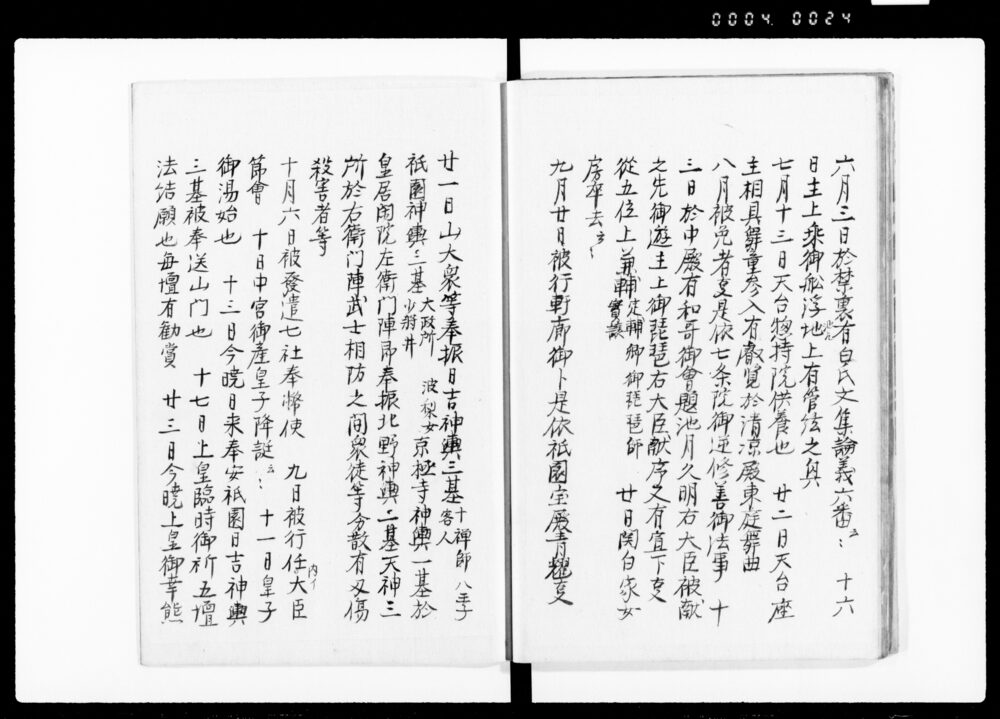 0004 0024
六月三日於禁裏有白氏文集論義六番云々 十六
日主上乗御舩浮地上有管絃之臾
七月十三日天台惣持院供養也 廿二日天台座
主相具舞童参入有叡覧於清凉殿東庭舞曲
八月被免者𠮷是依七条院御逆修善御法事 十
三日於中殿有和哥御會題池月久明右大臣被献
之先御遊主上御琵琶右大臣献序又有宣下𠮷
従五位上兼輔定輔卿御琵琶師 廿日関白家女
房卒去云々
九月廿日被行軒廊御卜是依祇園宝殿青耀𠮷
廿一日山大衆等奉振日吉神輿三基十禅師 八王子 客人
祇園神輿三基大政所 波梨女 少将井 京極寺神輿一基於
皇居閑院左衛門陣昂奉振北野神輿二基天神三
所於右衛門陣武士相防之間衆徒等分散有刄傷
殺害者等
十月六日被發遣七社奉幣使 九日被行任大臣
節會 十日中宮御産皇子降誕云々 十一日皇子
御湯始也 十三日今暁日来奉安祇園日吉神輿
三基被奉送山门也 十七日上皇臨時御祈五壇
法結願也毎壇有勧賞 廿三日今暁上皇御幸熊